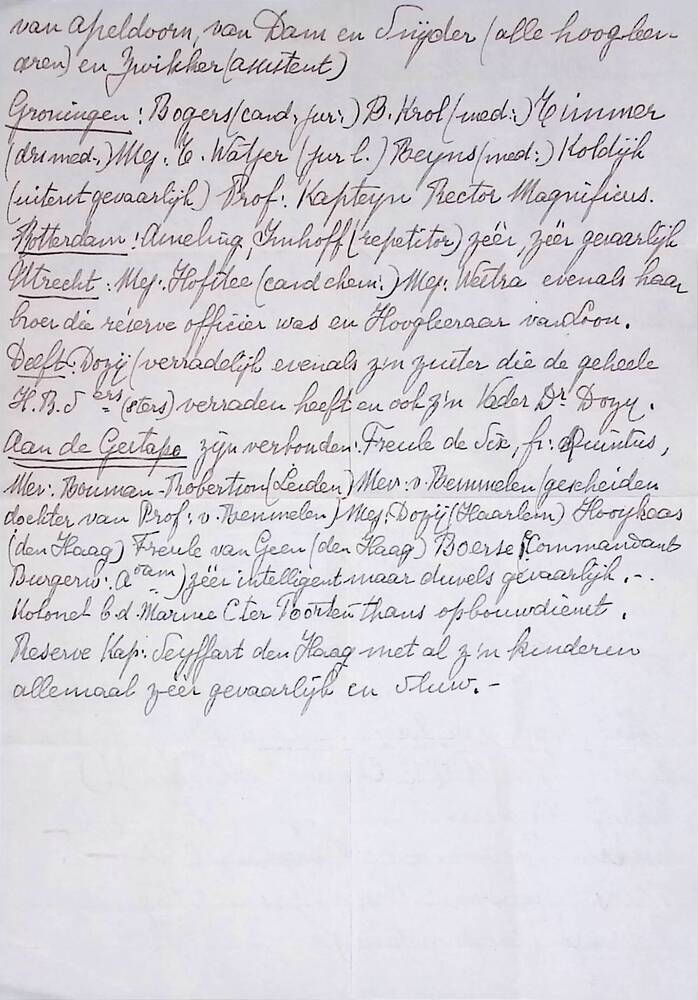 van Apeldoorn, van Dam en Snijder (alle hooglee-
aren) en Zwikker (assistent)
Groningen: Bogers (cand. jur:) B. Krol (med:) Timmer
(drs med.) Mej. E. Walter (jur l.) Reyns (med:) Koldijk
(uiterst gevaarlijk) Prof: Kapteyn Rector Magnificus.
Rotterdam: Ameling, Imhoff (repetitor) zéér, zéér gevaarlijk
Utrecht: Mej: Hofstee (cand chem:) Mej: Westra evenals haar
broer die réserve officier was en Hoogleeraar van Loon.
Delft: Dozij (verradelijk evenals z'n zuster die de geheele
H.B.S ers (sters) verraden heeft en ook z'n Vader Dr Dozy.
Aan de Gestapo zijn verbonden: Freule de Six, fr: Quintus,
Mev: Bouman-Robertson (Leiden) Mevr: v. Bemmelen (gescheiden
dochter van Prof: v. Bemmelen) Mej: Dozij (Haarlem) Hooykaas
(den Haag) Freule van Geen (den Haag) Boerse (Commandant
Burgerw: A'dam) zéér intelligent maar duvels gevaarlijk.-.
Kolonel b.d. Marine C ter Poorten thans opbouwdienst.
Reserve Kap: Seyffart den Haag met al z'n kinderen
allemaal zéér gevaarlijk en sluw.-